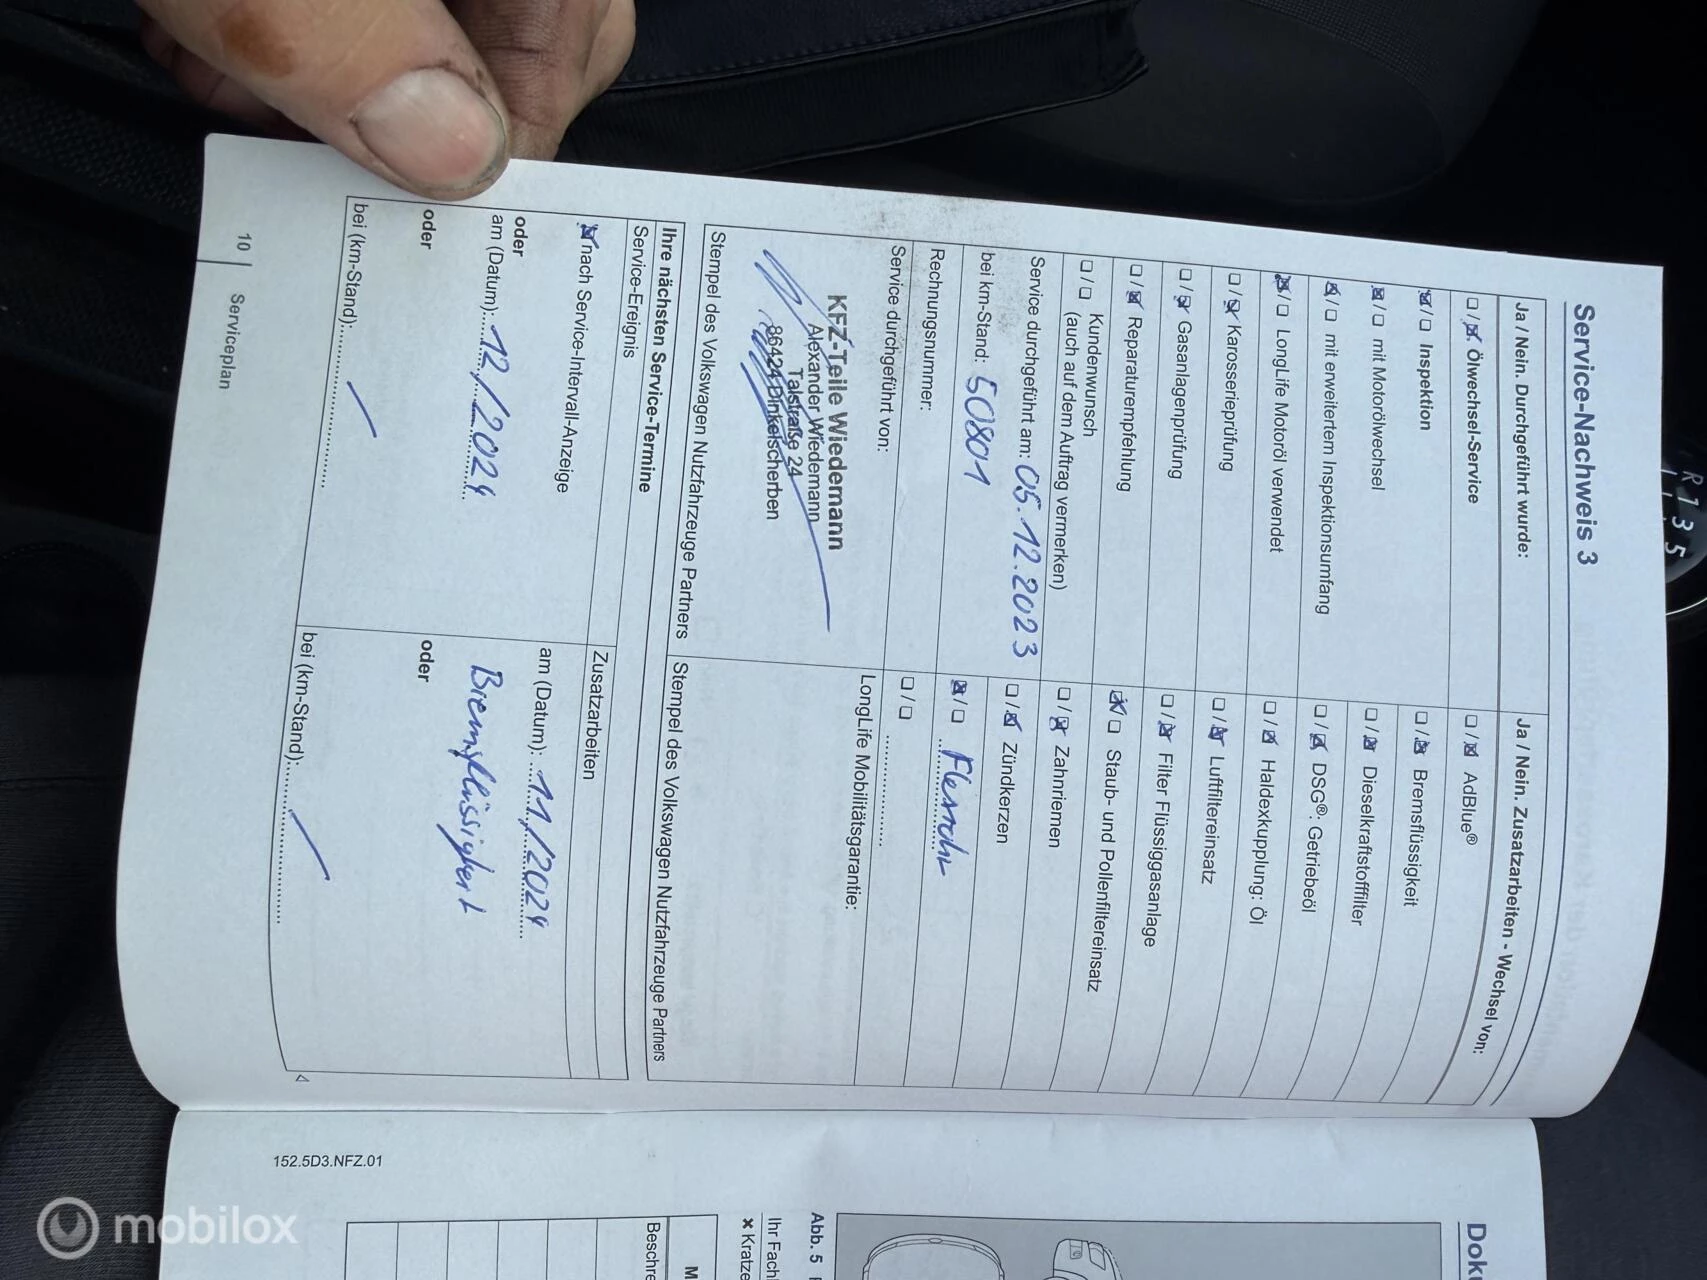 Service-Nachweis 3
Ja / Nein. Durchgeführt wurde:
☐ / ☒ Ölwechsel-Service
☒ / ☐ Inspektion
☒ / ☐ mit Motorölwechsel
☒ / ☐ mit erweitertem Inspektionsumfang
☒ / ☐ LongLife Motoröl verwendet
☐ / ☒ Karosserieprüfung
☐ / ☒ Gasanlagenprüfung
☐ / ☒ Reparaturempfehlung
☐ / ☐ Kundenwunsch
(auch auf dem Auftrag vermerken)
Service durchgeführt am: 05.12.2023
bei km-Stand: 50801
Rechnungsnummer:
Service durchgeführt von:
KFZ-Teile Wiedemann
Alexander Wiedemann
Talstraße 24
86424 Dinkelscherben
Stempel des Volkswagen Nutzfahrzeuge Partners
Ja / Nein. Zusatzarbeiten - Wechsel von:
☐ / ☒ AdBlue®
☐ / ☒ Bremsflüssigkeit
☐ / ☒ Dieselkraftstofffilter
☐ / ☒ DSG®: Getriebeöl
☐ / ☒ Haldexkupplung: Öl
☐ / ☒ Luftfiltereinsatz
☐ / ☒ Filter Flüssiggasanlage
☒ / ☐ Staub- und Pollenfiltereinsatz
☐ / ☒ Zahnriemen
☐ / ☒ Zündkerzen
☒ / ☐
☐ / ☐ ....................
LongLife Mobilitätsgarantie:
Stempel des Volkswagen Nutzfahrzeuge Partners
Ihre nächsten Service-Termine
Service-Ereignis
☒ nach Service-Intervall-Anzeige
oder
am (Datum): 12/2024
oder
bei (km-Stand): /
Zusatzarbeiten
am (Datum): 11/2024
Bremsflüssigkeit
oder
bei (km-Stand): /
10 | Serviceplan
152.5D3.NFZ.01
Abb. 5
Ihr Fach
✖ Kratze
M
Beschre
R 1 3 5
mobilox